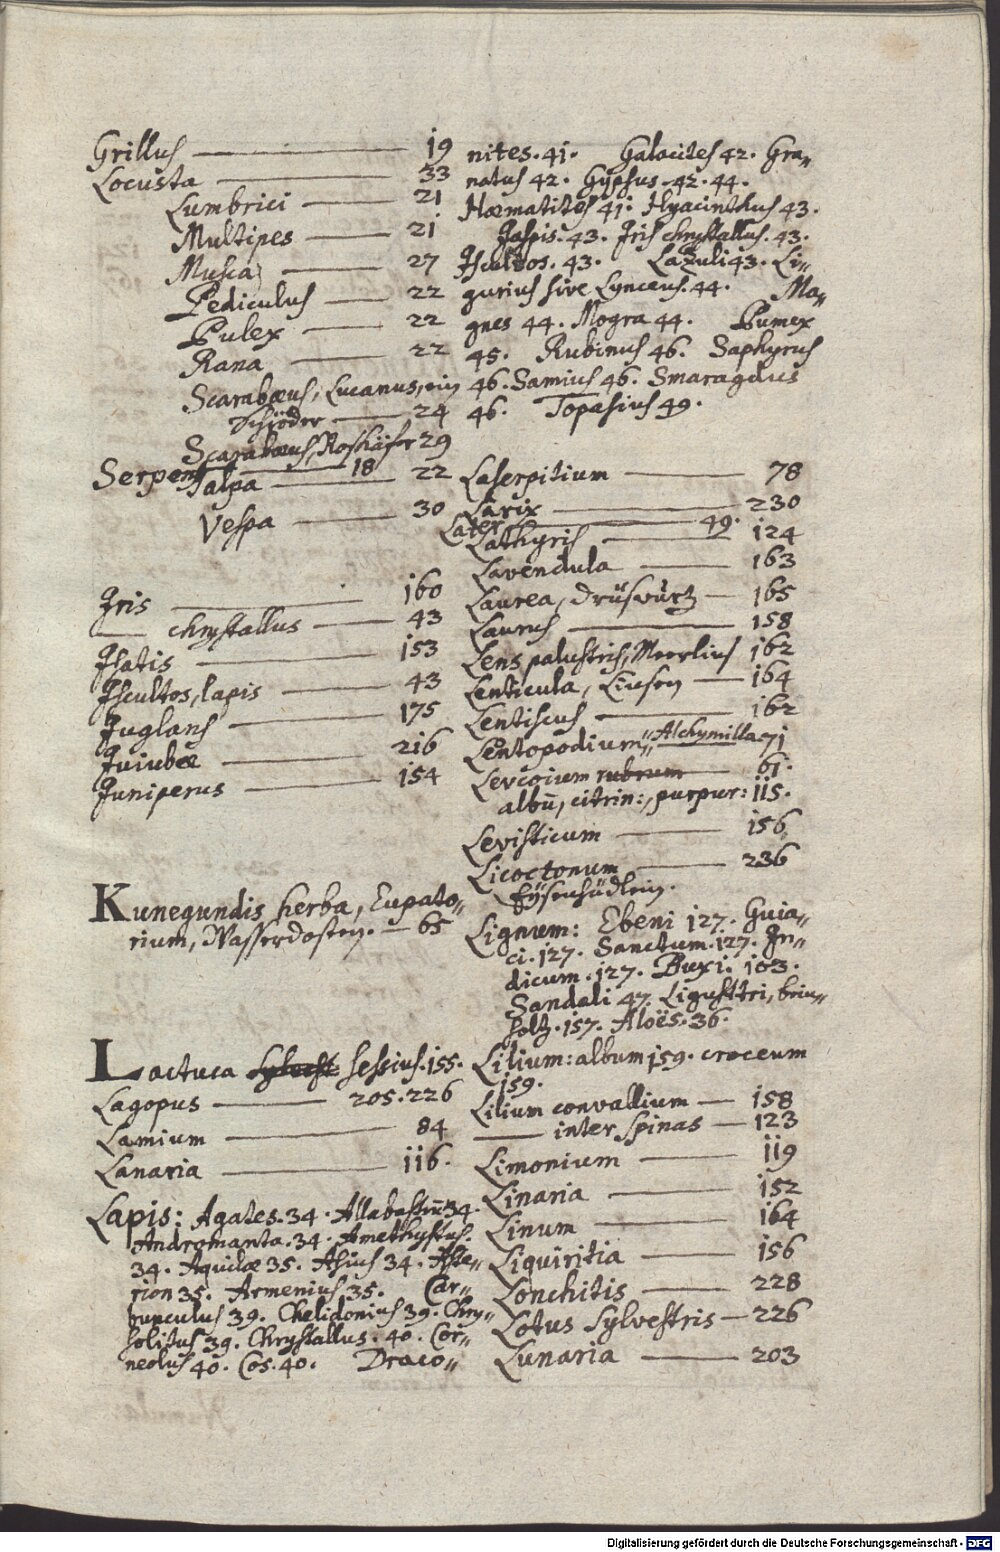 Grillus — 19
Locusta — 33
Lumbrici — 21
Multipes — 21
Musca — 27
Pediculus — 22
Pulex — 22
Rana — 22
Scarabæus, Lucanus, ein
Schröder — 24
Scarabæus, Roskäfer 29
Serpens — 18
Talpa — 22
Vespa — 30
Iris — 160
— chrystallus — 43
Isatis — 153
Iscultos, lapis — 43
Juglans — 175
Jujubæ — 216
Juniperus — 154
Kunegundis herba, Eupato„
rium, Wasserdosten. — 65
Lactuca sylvest sessius. 155.
Lagopus — 205. 226
Lamium — 84
Lanaria — 116.
Lapis: Agates. 34. Allabastrū 34.
Andromanta. 34. Amethystus.
34. Aquilæ 35. Asius 34. Aste„
rion 35. Armenius 35. Car„
bunculus 39. Chelidonius 39. Chry„
solitus 39. Chrystallus. 40. Cor„
neolus 40. Cos. 40. Draco„
nites. 41. Galacites 42. Gra„
natus 42. Gypsus 42. 44.
Hæmatites 41. Hyacinthus 43.
Jaspis. 43. Iris chrystallus. 43.
Iscultos. 43. Lazuli 43. Li„
gurius sive Lynceus. 44. Ma„
gnes 44. Mogra 44. Pumex
45. Rubinus 46. Saphyrus
46. Samius 46. Smaragdus
46. Topasius 49.
Laserpitium — 78
Larix — 230
Later — 49.
Lathyris — 124
Lavendula — 163
Laurea, Drüswurtz — 165
Laurus — 158
Lens palustris, Meerlins 162
Lenticula, Linsen — 164
Lentiscus — 162
Lentopodium „Alchymilla 71
Levcoium rubrum — 61.
albū, citrin:, purpur: 115.
Levisticum — 156
Licoctonum — 236
Eÿsenhüdlein.
Lignum: Ebeni 127. Guia„
ci. 127. Sanctum. 127. In„
dicum. 127. Buxi. 103.
Sandali 47. Ligusttri, bein„
holtz. 157. Aloës. 36.
Lilium: album 159. croceum
159.
Lilium convallium — 158
— inter spinas — 123
Limonium — 119
Linaria — 152
Linum — 164
Liquiritia — 156
Lonchitis — 228
Lotus sylvestris — 226
Lunaria — 203
Digitalisierung gefördert durch die Deutsche Forschungsgemeinschaft - DFG